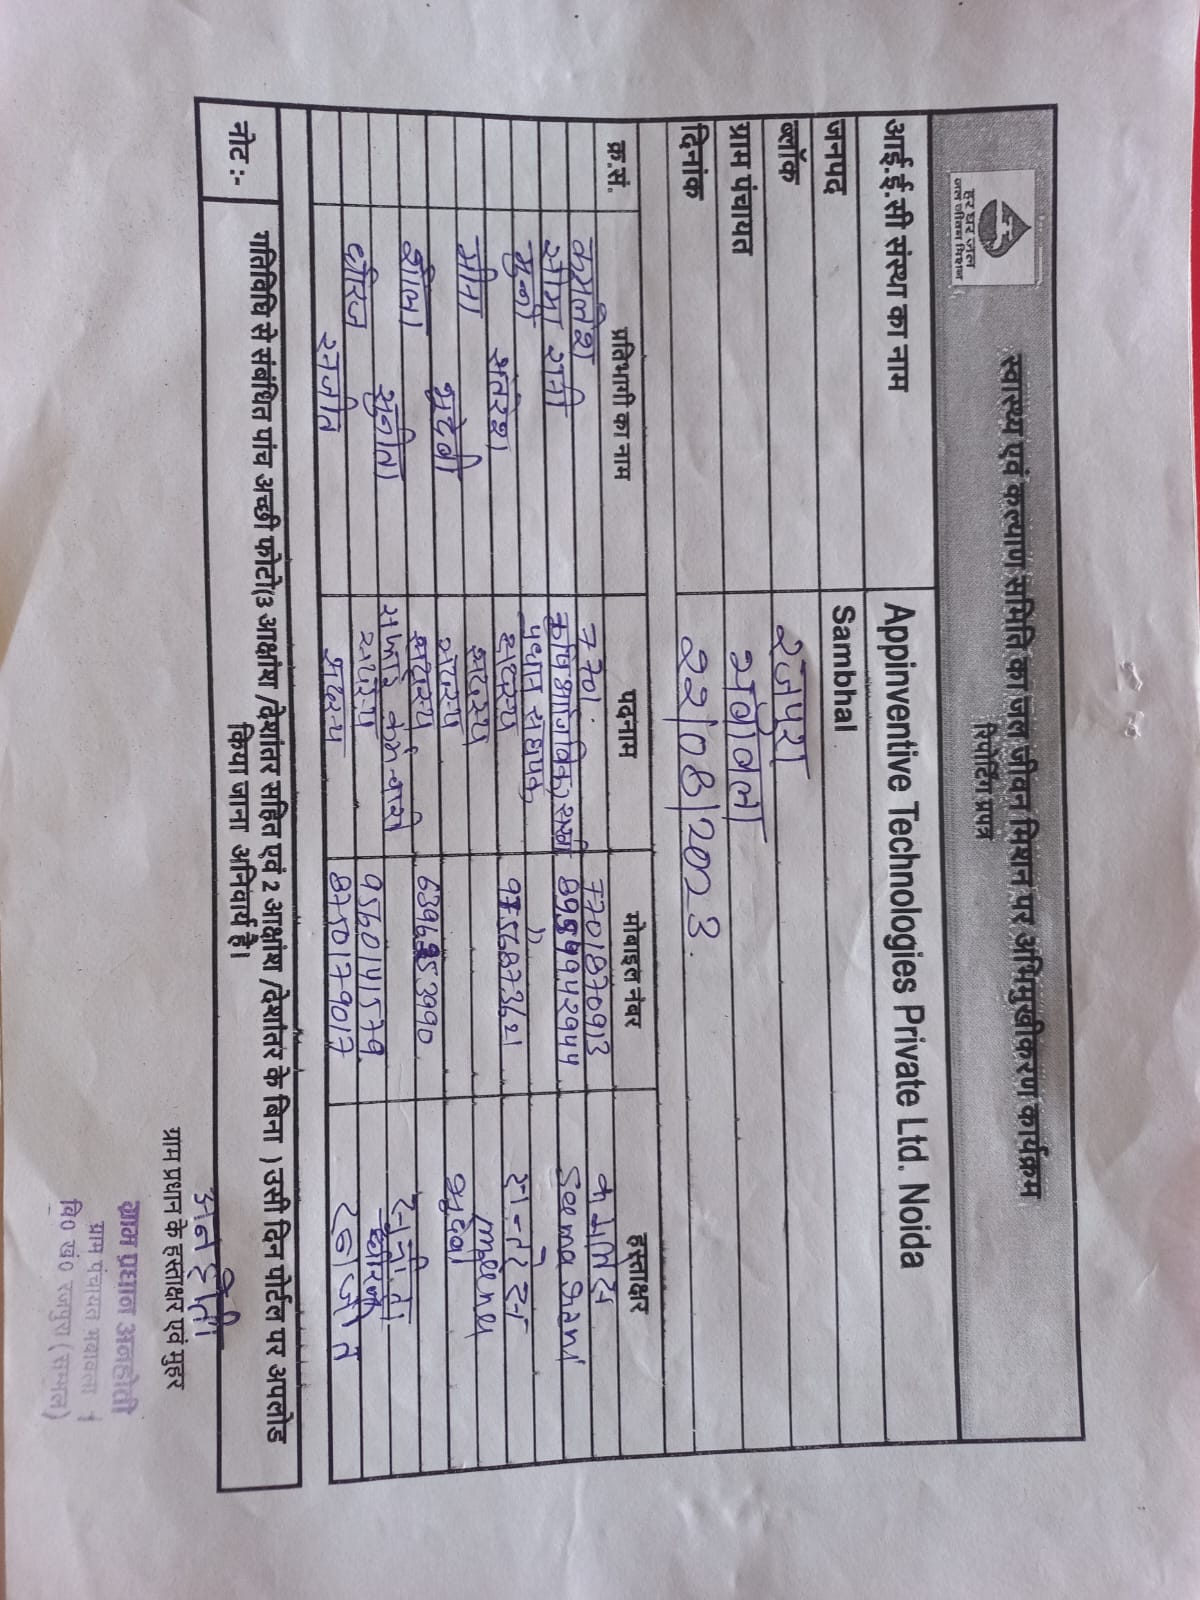 हर घर जल
जल जीवन मिशन
स्वास्थ्य एवं कल्याण समिति का जल जीवन मिशन पर अभिमुखीकरण कार्यक्रम
रिपोर्टिंग प्रपत्र
आई.ई.सी संस्था का नाम Appinventive Technologies Private Ltd. Noida
जनपद Sambhal
ब्लॉक रजपुरा
ग्राम पंचायत
दिनांक 22/08/2023
क्र.सं. प्रतिभागी का नाम पदनाम मोबाइल नंबर हस्ताक्षर
कमलेश 7701870913
सीमा रानी कृषि आजीविका सखी Seema Rani
मुन्नी प्रधान सहायक
संतरेश सदस्य
मीना सदस्य meena
भुदेवी सदस्य
शीला सदस्य
सुनीता सफाई कर्मचारी सुनीता
धीरज सदस्य 9560141579 धीरज
रनजीत सदस्य 8750179017
नोट :- गतिविधि से संबंधित पांच अच्छी फोटो(3 आक्षांश /देशांतर सहित एवं 2 आक्षांश /देशांतर के बिना ) उसी दिन पोर्टल पर अपलोड
किया जाना अनिवार्य है।
अनहोती
ग्राम प्रधान के हस्ताक्षर एवं मुहर
ग्राम प्रधान अनहोती
ग्राम पंचायत
वि0 खं0 रजपुरा (सम्भल)